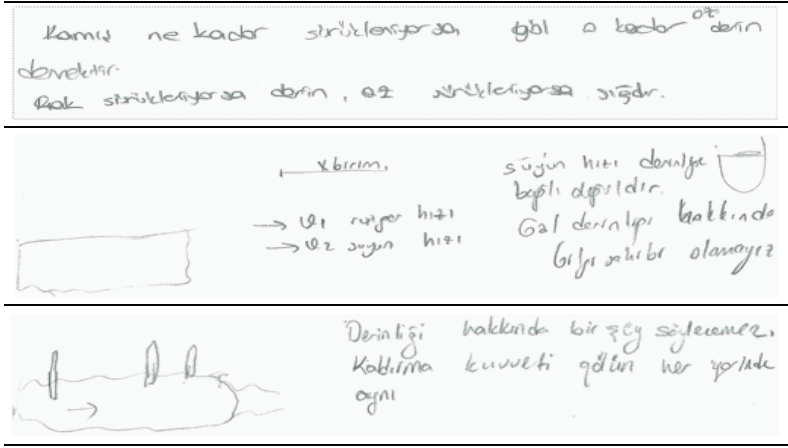 Kamış ne kadar sürükleniyorsa göl o kadar az derin
demektir.
Çok sürükleniyorsa derin, az sürükleniyorsa sığdır.
x birim.
→ v₁ rüzgar hızı
→ v₂ suyun hızı
suyun hızı derinliğe
bağlı değildir.
Göl derinliği hakkında
bilgi sahibi olamayız
Derinliği hakkında bir şey söylenemez.
Kaldırma kuvveti gölün her yerinde
aynı